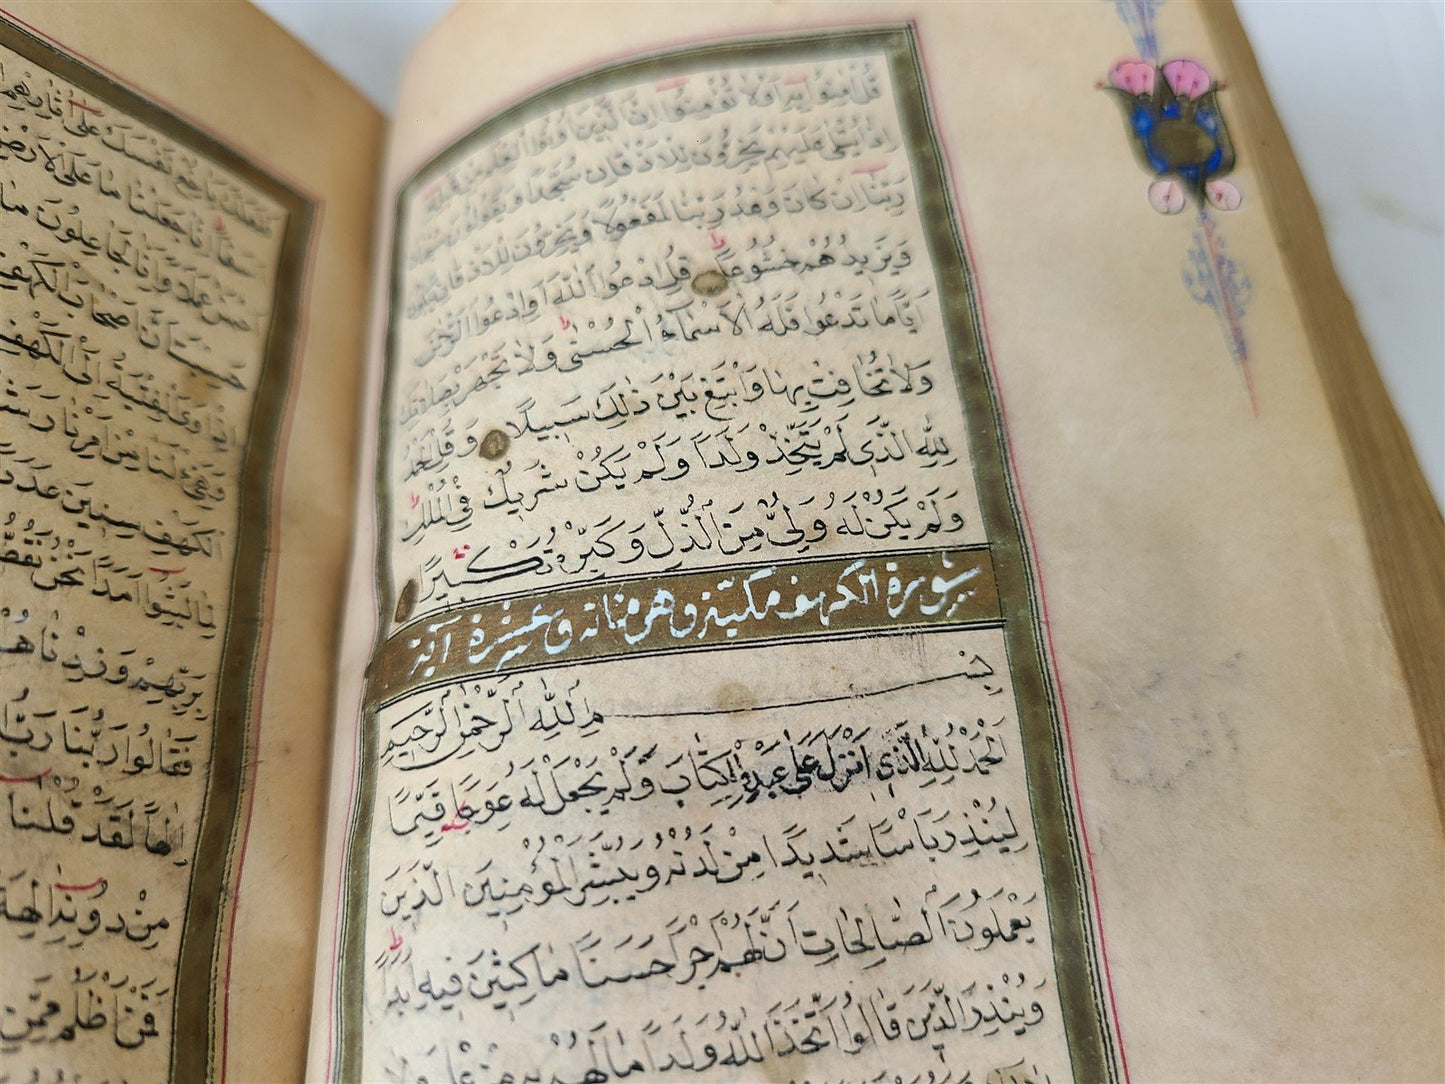 قُلْ اٰمِنُوا بِهِ اَوْ لَا تُؤْمِنُوا اِنَّ الَّذِينَ اُوتُوا الْعِلْمَ مِنْ قَبْلِهِ
اِذَا يُتْلٰى عَلَيْهِمْ يَخِرُّونَ لِلْاَذْقَانِ سُجَّدًا وَيَقُولُونَ سُبْحَانَ
رَبِّنَا اِنْ كَانَ وَعْدُ رَبِّنَا لَمَفْعُولًا وَيَخِرُّونَ لِلْاَذْقَانِ يَبْكُونَ
وَيَزِيدُهُمْ خُشُوعًا قُلِ ادْعُوا اللّٰهَ اَوِ ادْعُوا الرَّحْمٰنَ
اَيًّا مَا تَدْعُوا فَلَهُ الْاَسْمَاءُ الْحُسْنٰى وَلَا تَجْهَرْ بِصَلَاتِكَ
وَلَا تُخَافِتْ بِهَا وَابْتَغِ بَيْنَ ذٰلِكَ سَبِيلًا وَقُلِ الْحَمْدُ
لِلّٰهِ الَّذِي لَمْ يَتَّخِذْ وَلَدًا وَلَمْ يَكُنْ شَرِيكٌ فِي الْمُلْكِ
وَلَمْ يَكُنْ لَهُ وَلِيٌّ مِنَ الذُّلِّ وَكَبِّرْهُ تَكْبِيرًا
سورة الكهف مكية وهي مائة وعشرة آية
بِسْمِ اللّٰهِ الرَّحْمٰنِ الرَّحِيمِ
اَلْحَمْدُ لِلّٰهِ الَّذِي اَنْزَلَ عَلٰى عَبْدِهِ الْكِتَابَ وَلَمْ يَجْعَلْ لَهُ عِوَجًا قَيِّمًا
لِيُنْذِرَ بَاْسًا شَدِيدًا مِنْ لَدُنْهُ وَيُبَشِّرَ الْمُؤْمِنِينَ الَّذِينَ
يَعْمَلُونَ الصَّالِحَاتِ اَنَّ لَهُمْ اَجْرًا حَسَنًا مَاكِثِينَ فِيهِ اَبَدًا
وَيُنْذِرَ الَّذِينَ قَالُوا اتَّخَذَ اللّٰهُ وَلَدًا مَا لَهُمْ بِهِ مِنْ عِلْمٍ وَلَا
فَلَعَلَّكَ بَاخِعٌ نَفْسَكَ عَلٰى اٰثَارِهِمْ
اَسَفًا اِنَّا جَعَلْنَا مَا عَلَى الْاَرْضِ
اَحْسَنُ عَمَلًا وَاِنَّا لَجَاعِلُونَ مَا
حَسِبْتَ اَنَّ اَصْحَابَ الْكَهْفِ
اِذْ اَوَى الْفِتْيَةُ اِلَى الْكَهْفِ
وَهَيِّئْ لَنَا مِنْ اَمْرِنَا رَشَ
الْكَهْفِ سِنِينَ عَدَدًا
لِمَا لَبِثُوا اَمَدًا نَحْنُ نَقُصُّ
بِرَبِّهِمْ وَزِدْنَاهُمْ
فَقَالُوا رَبُّنَا رَبُّ
اِلٰهًا لَقَدْ قُلْنَا
مِنْ دُونِهِ اٰلِهَةً
فَمَنْ اَظْلَمُ مِمَّنِ